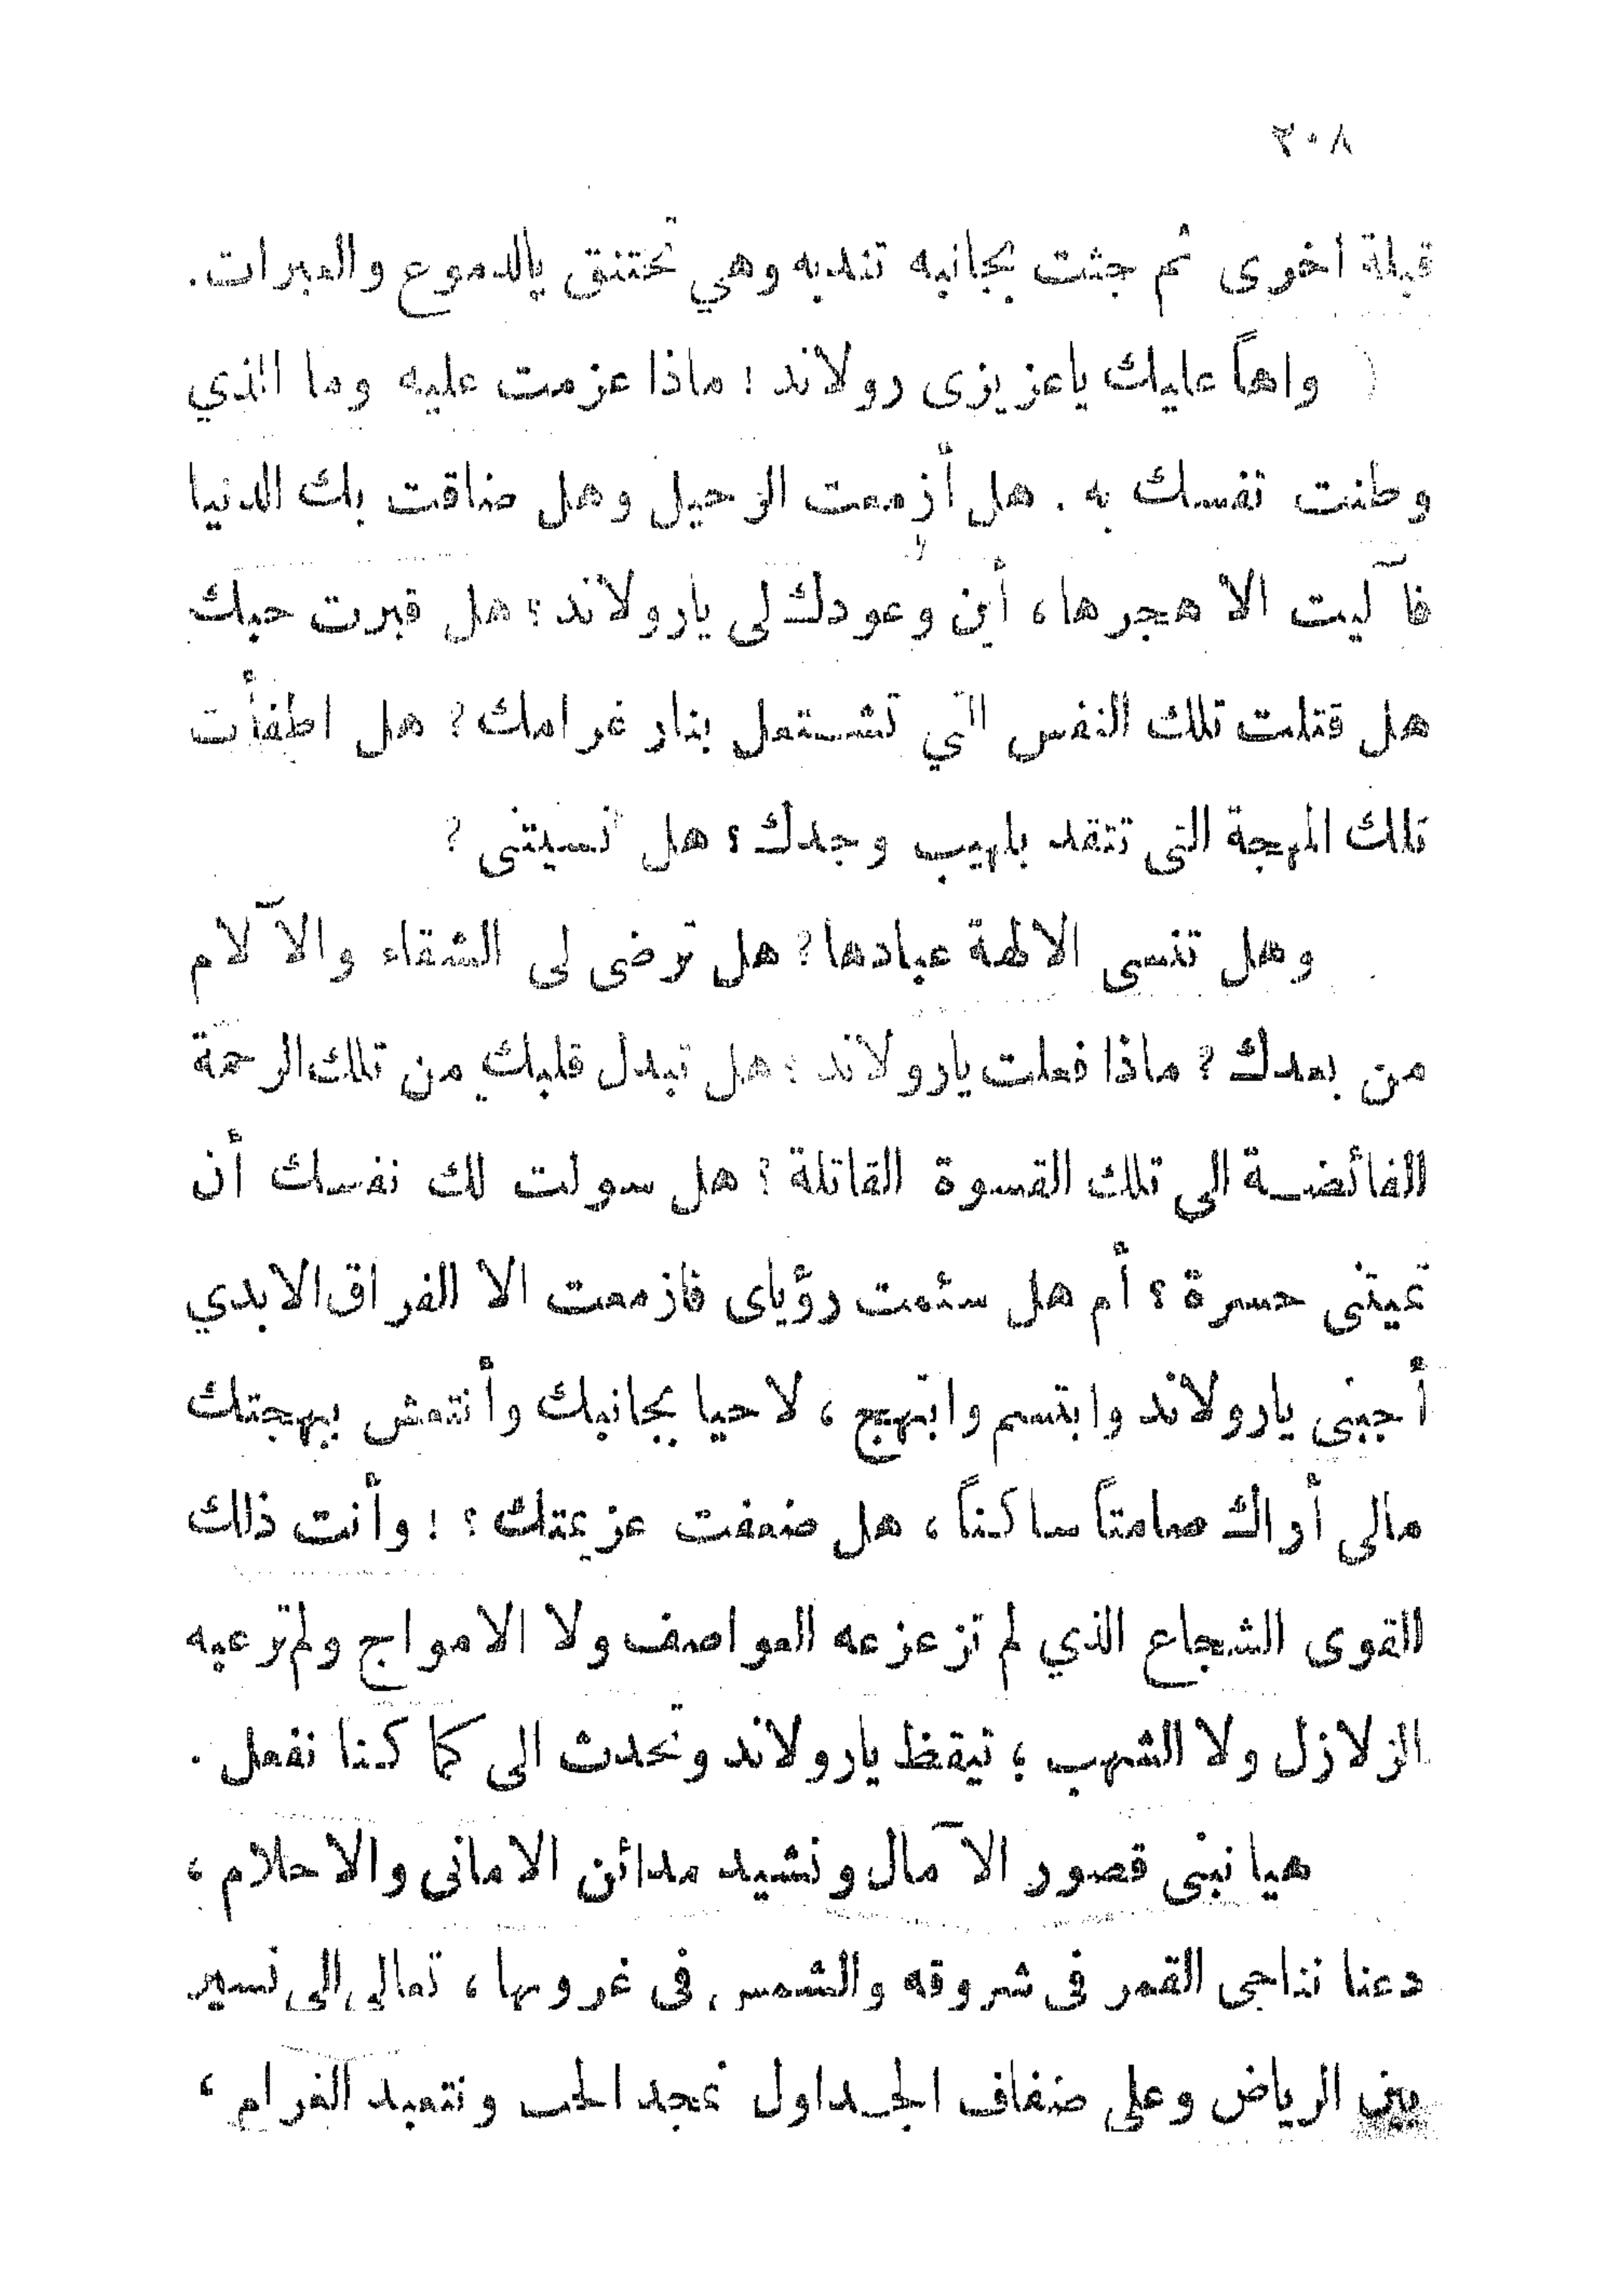 ٢٠٨
قبلة أخرى ثم جثت بجانبه تندبه وهي تختنق بالدموع والعبرات.
( واهاً عليك ياعزيزى رولاند ! ماذا عزمت عليه وما الذي
وطنت نفسك به . هل أزمعت الرحيل وهل ضاقت بك الدنيا
فآليت الا هجرها ، أين وعودك لى يارولاند ؟ هل قبرت حبك
هل قتلت تلك النفس التي تشتعل بنار غرامك ؟ هل اطفأت
تلك المهجة التى تتقد بلهيب وجدك ؟ هل نسيتنى ؟
وهل تنسى الالهة عبادها ؟ هل ترضى لى الشقاء والآلام
من بعدك ؟ ماذا فعلت يارولاند ؟ هل تبدل قلبك من تلك الرحمة
الفائضة الى تلك القسوة القاتلة ؟ هل سولت لك نفسك أن
تميتنى حسرة ؟ أم هل سئمت رؤياى فازمعت الا الفراق الابدي
أجبنى يارولاند وابتسم وابتهج ، لاحيا بجانبك وأنتعش ببهجتك
مالى أراك صامتاً ساكناً ، هل ضعفت عزيمتك ؟ ! وأنت ذلك
القوى الشجاع الذي لم تزعزعه العواصف ولا الامواج ولم ترعبه
الزلازل ولا الشهب ؛ تيقظ يارولاند وتحدث الى كما كنا نفعل .
هيا نبنى قصور الآمال ونشيد مدائن الامانى والاحلام ،
دعنا نناجى القمر فى شروقه والشمس فى غروبها ، تعالى الى نسير
بين الرياض وعلى ضفاف الجداول نمجد الحب ونتعبد الغرام ،